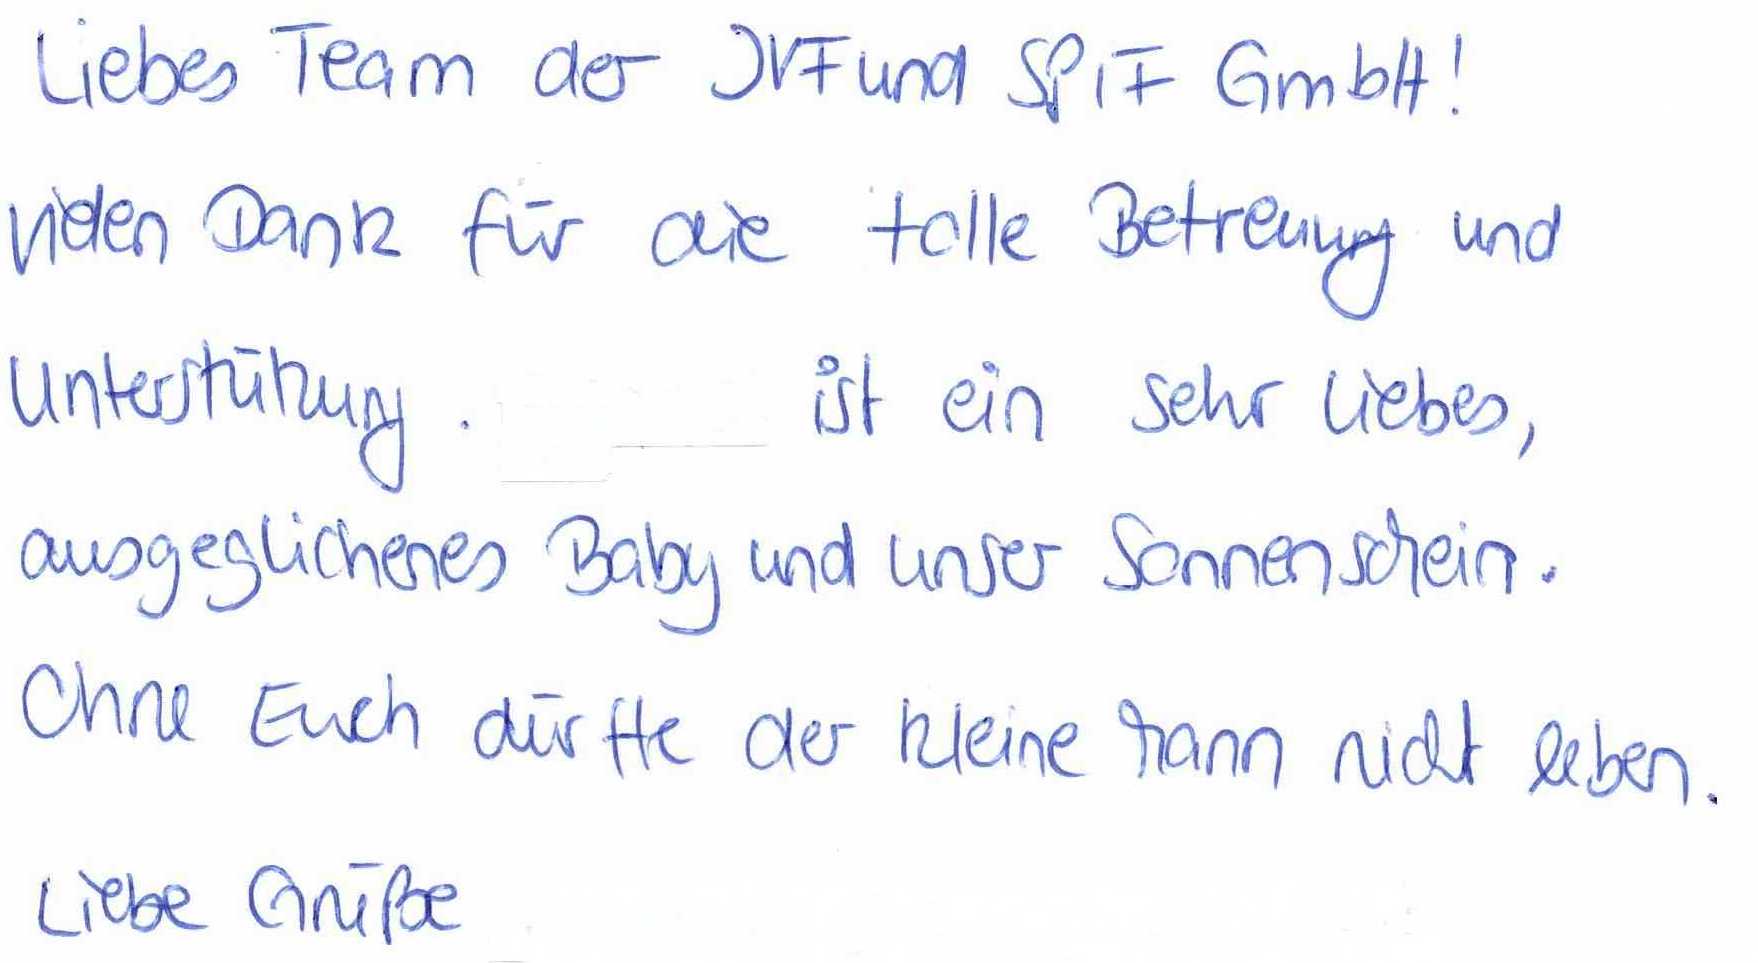 Liebes Team der IVF und SPIF GmbH!
vielen Dank für die tolle Betreuung und
Unterstützung. ist ein sehr liebes,
ausgeglichenes Baby und unser Sonnenschein.
Ohne Euch dürfte der kleine Mann nicht leben.
Liebe Grüße